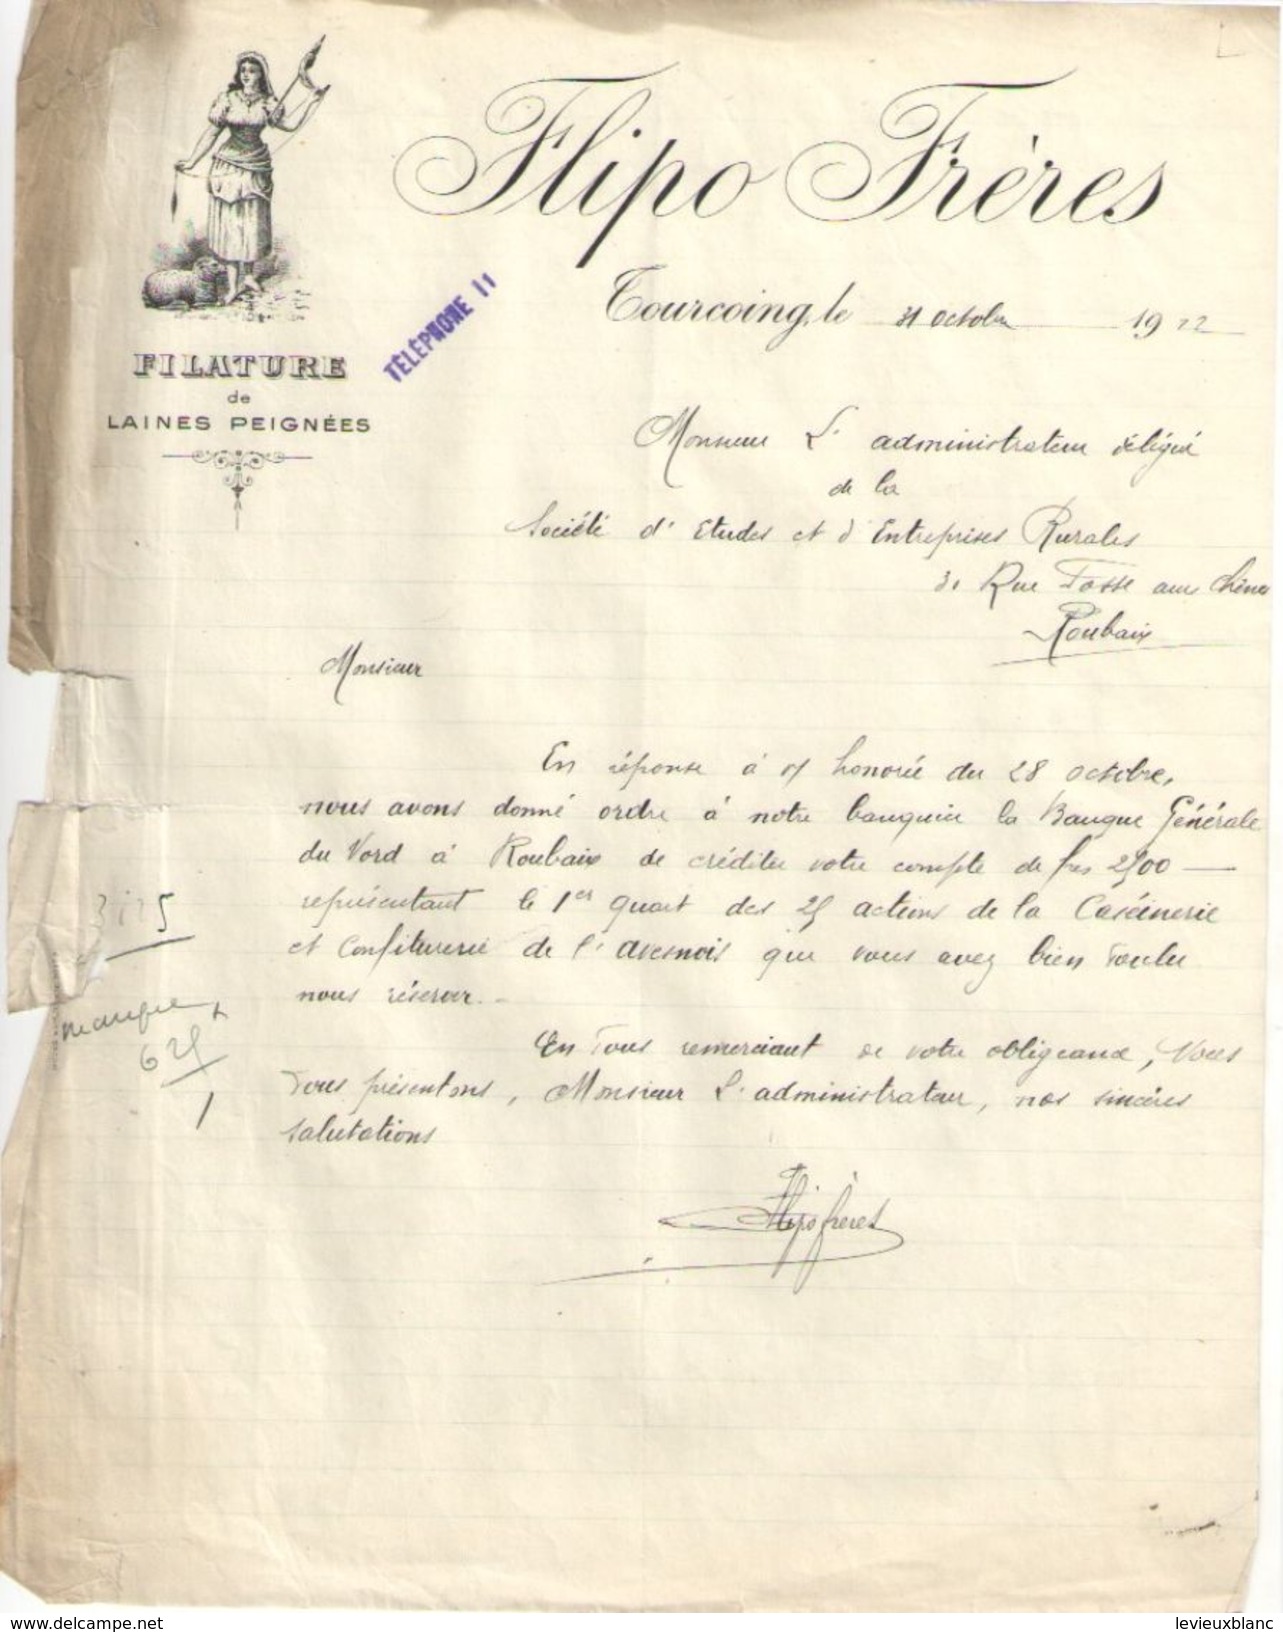 Flipo Frères
Tourcoing, le 31 octobre 1922
TÉLÉPHONE 11
FILATURE
de
LAINES PEIGNÉES
Monsieur L'administrateur délégué
de la
Société d'Etudes et d'Entreprises Rurales
31 Rue Fosse aux Chênes
Roubaix
Monsieur
En réponse à v/ honorée du 28 octobre,
nous avons donné ordre à notre banquier la Banque Générale
du Nord à Roubaix de créditer votre compte de frs 2500 —
représentant le 1er quart des 25 actions de la Caséinerie
et Confiturerie de l'avesnois que vous avez bien voulu
nous réserver.
En vous remerciant de votre obligeance, Nous
vous présentons, Monsieur L'administrateur, nos sincères
salutations
Flipo frères
3125
manque
625
1
www.delcampe.net
levieuxblanc